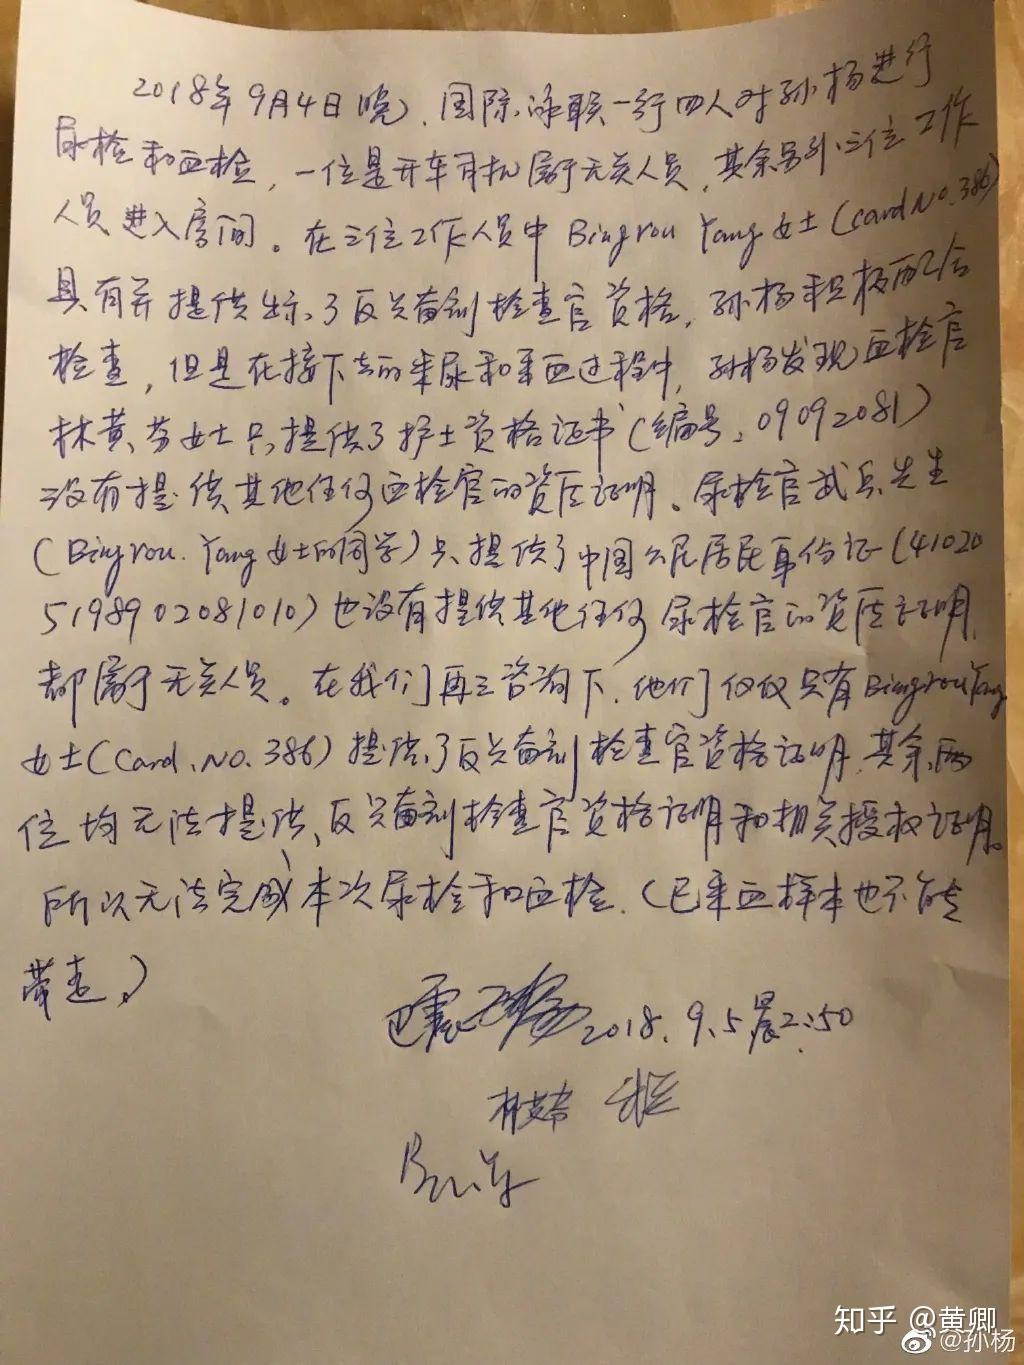 2018年9月4日晚、国际泳联一行四人对孙杨进行
尿检和血检，一位是开车司机属于无关人员，其余另外三位工作
人员进入房间。在三位工作人员中 Bingrou Yang 女士(card No.386)
具有并提供出示了反兴奋剂检查官资格，孙杨积极配合
检查，但是在接下去的采尿和采血过程中，孙杨发现血检官
林黄芬女士只提供了护士资格证书(编号：09092081)
没有提供其他任何血检官的资质证明。尿检官武兵先生
(Bingrou.Yang女士的同学)只提供了中国公民居民身份证(41020
5198902081010)也没有提供其他任何尿检官的资质证明，
都属于无关人员。在我们再三咨询下，他们仅仅只有Bingrou Yang
女士(Card.No.386)提供了反兴奋剂检查官资格证明，其余两
位均无法提供、反兴奋剂检查官资格证明和相关授权证明。
所以无法完成本次尿检和血检.(已采血样本也不能
带走。)
巴震 孙杨 2018.9.5晨2:50
知乎 @黄卿
@孙杨